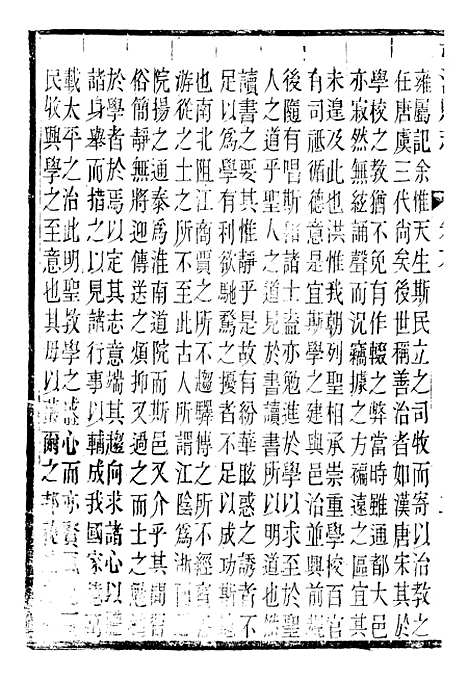 雍屬記余惟天生斯民立之司牧而寄以治教之
任唐虞三代尚矣後世稱善治者如漢唐宋其於
學校之教猶不免有作輟之弊當時雖通都大邑
亦寂然無絃誦聲而況竊據之方褊遠之區宜其
未遑及此也洪惟我朝列聖相承崇重學校百官
有司祗循德意是宜斯學之建與所以並有前規
後隨有唱斯和諸士盍亦勉進於學以求至於聖
人之道乎聖人之道見於書讀書所以明道也然
讀書之要其惟靜乎是故有紛華眩惑之誘者不
足以為學有利欲馳騖之擾者不足以成功斯
也南北阻江商賈之所不趨驛傳之所不經宦
游從之士之所不至此古人所謂江陰為浙
院揚之通泰為淮南道院而斯邑又介乎其間習
俗簡靜無將迎傳送之煩抑又過之而士之勉
於學者於焉以定其志意端其趨向求諸心以
諸身舉而措之以見諸行事以輔成我國家
載太平之治此明聖教學之盛心而亦賢
民敬興學之至意也其毋以爾之